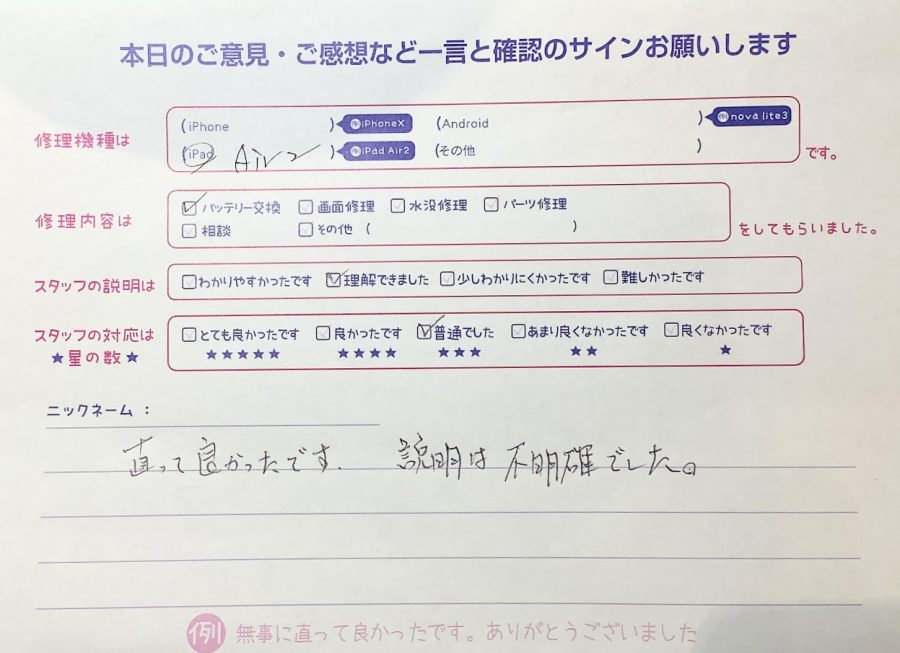 本日のご意見・ご感想など一言と確認のサインお願いします
修理機種は (iPhone ) 例iPhoneX (Android ) 例nova lite3
(iPad Air2 ) 例iPad Air2 (その他 ) です。
修理内容は ☑バッテリー交換 □画面修理 □水没修理 □パーツ修理
□相談 □その他 ( ) をしてもらいました。
スタッフの説明は □わかりやすかったです ☑理解できました □少しわかりにくかったです □難しかったです
スタッフの対応は □とても良かったです □良かったです ☑普通でした □あまり良くなかったです □良くなかったです
★星の数★ ★★★★★ ★★★★ ★★★ ★★ ★
ニックネーム：
直って良かったです. 説明は不明確でした。
例 無事に直って良かったです。ありがとうございました